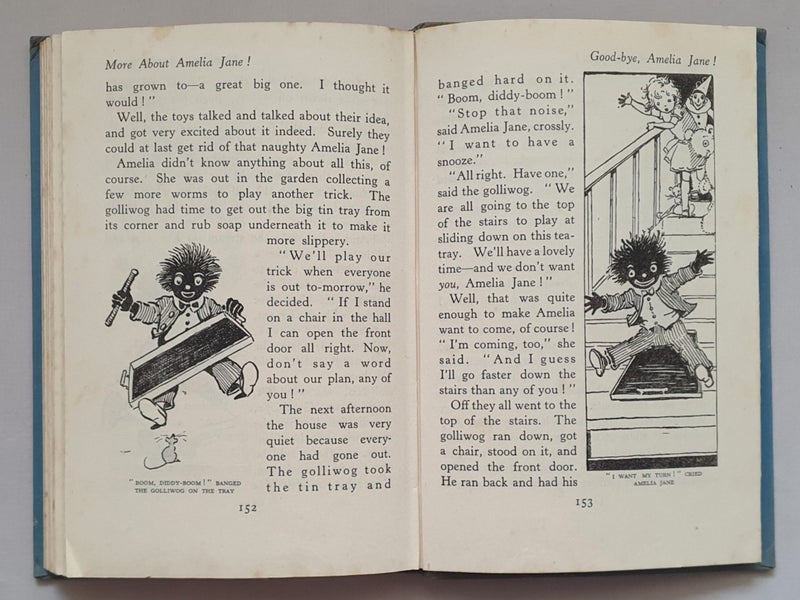 More About Amelia Jane!
has grown to—a great big one. I thought it
would!"
Well, the toys talked and talked about their idea,
and got very excited about it indeed. Surely they
could at last get rid of that naughty Amelia Jane!
Amelia didn't know anything about all this, of
course. She was out in the garden collecting a
few more worms to play another trick. The
golliwog had time to get out the big tin tray from
its corner and rub soap underneath it to make it
more slippery.
"We'll play our
trick when everyone
is out to-morrow," he
decided. "If I stand
on a chair in the hall
I can open the front
door all right. Now,
don't say a word
about our plan, any of
you!"
The next afternoon
the house was very
quiet because every-
one had gone out.
The golliwog took
the tin tray and
"BOOM, DIDDY-BOOM!" BANGED
THE GOLLIWOG ON THE TRAY
152
Good-bye, Amelia Jane!
banged hard on it.
"Boom, diddy-boom!"
"Stop that noise,"
said Amelia Jane, crossly.
"I want to have a
snooze."
"All right. Have one,"
said the golliwog. "We
are all going to the top
of the stairs to play at
sliding down on this tea-
tray. We'll have a lovely
time—and we don't want
you, Amelia Jane!"
Well, that was quite
enough to make Amelia
want to come, of course!
"I'm coming, too," she
said. "And I guess
I'll go faster down the
stairs than any of you!"
Off they all went to the
top of the stairs. The
golliwog ran down, got
a chair, stood on it, and
opened the front door.
He ran back and had his
"I WANT MY TURN!" CRIED
AMELIA JANE
153